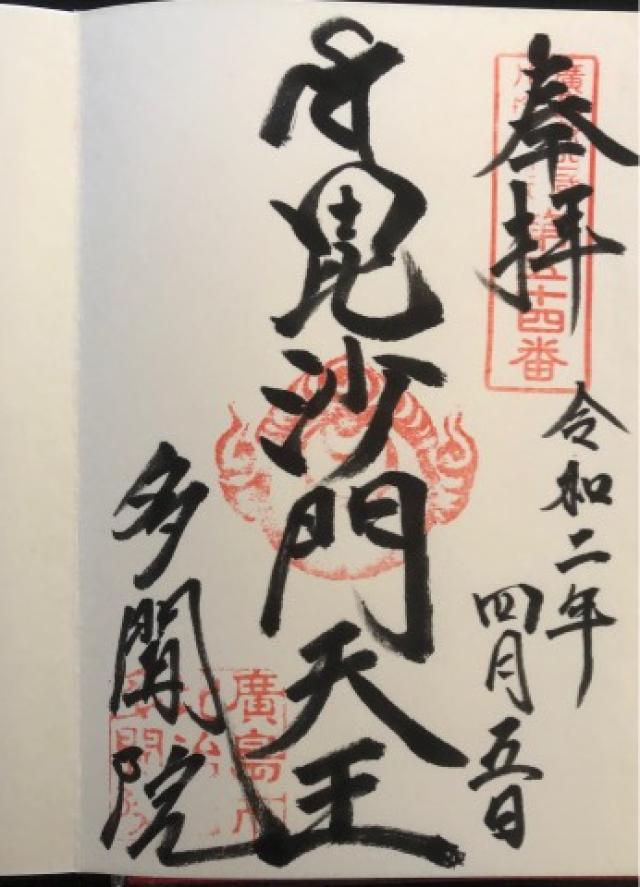 奉拝
第五十四番
令和二年
四月五日
毘沙門天王
多聞院
廣島市